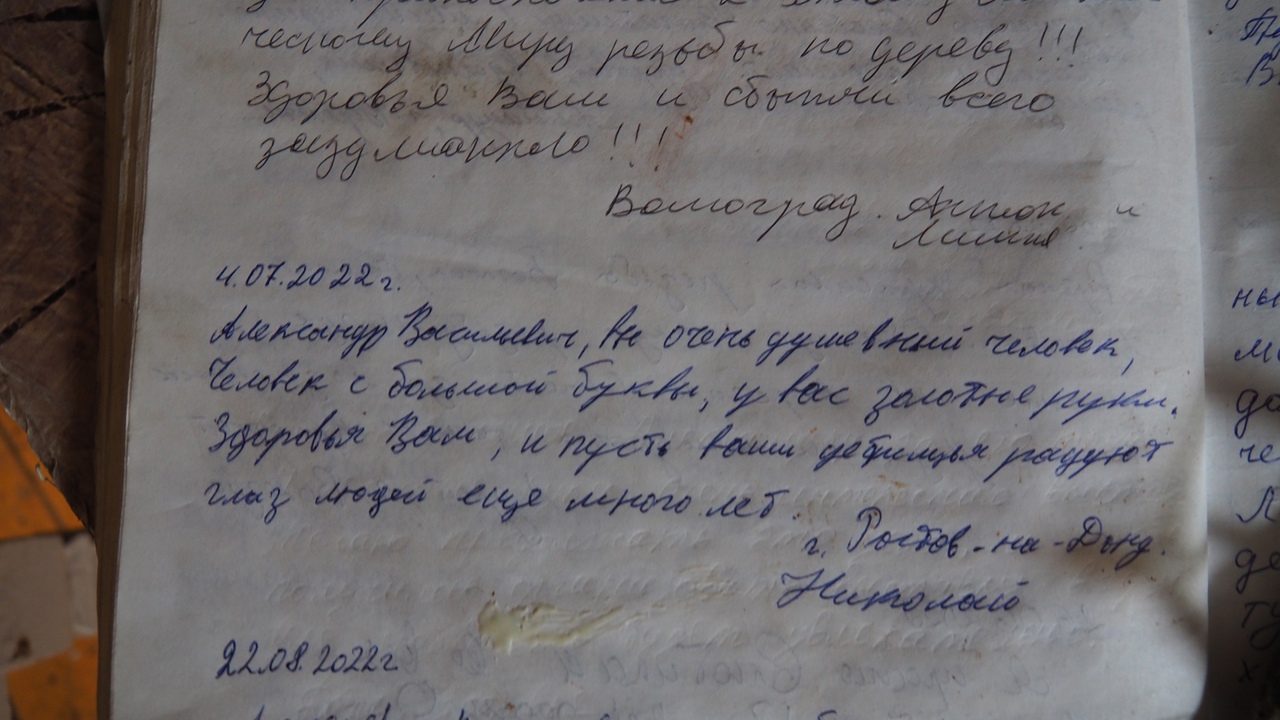 ческому Миру резьбы по дереву!!!
Здоровья Вам и сбытия всего
задуманного!!!
Волгоград. Антон и
Лилия
4.07.2022г.
Александр Васильевич, Вы очень душевный человек,
Человек с большой буквы, у вас золотые руки.
Здоровья Вам, и пусть ваши детища радуют
глаз людей еще много лет.
г. Ростов-на-Дону.
Николай
22.08.2022г.